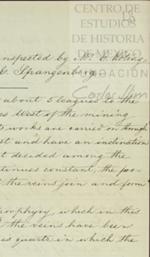 CENTRO DE
ESTUDIOS
DE HISTORIA
DE MEXICO
inspected by Mr. C.
C. Spangenberg
FUNDACIÓN
Carlos Slim
about 5 leagues to the
West of the mining
works are carried on through
and have an inclination
decided among the
continues constant, the
the veins join and form
porphyry which in this
the veins have been
quartz in which the